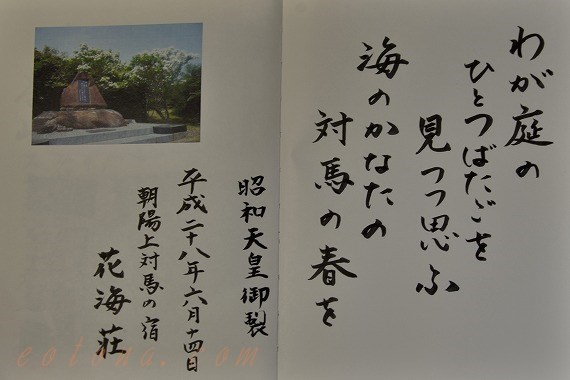 わが庭の
ひとつばたごを
見つつ思ふ
海のかなたの
対馬の春を
昭和天皇御製
平成二十八年六月十四日
朝陽上対馬の宿
花海荘